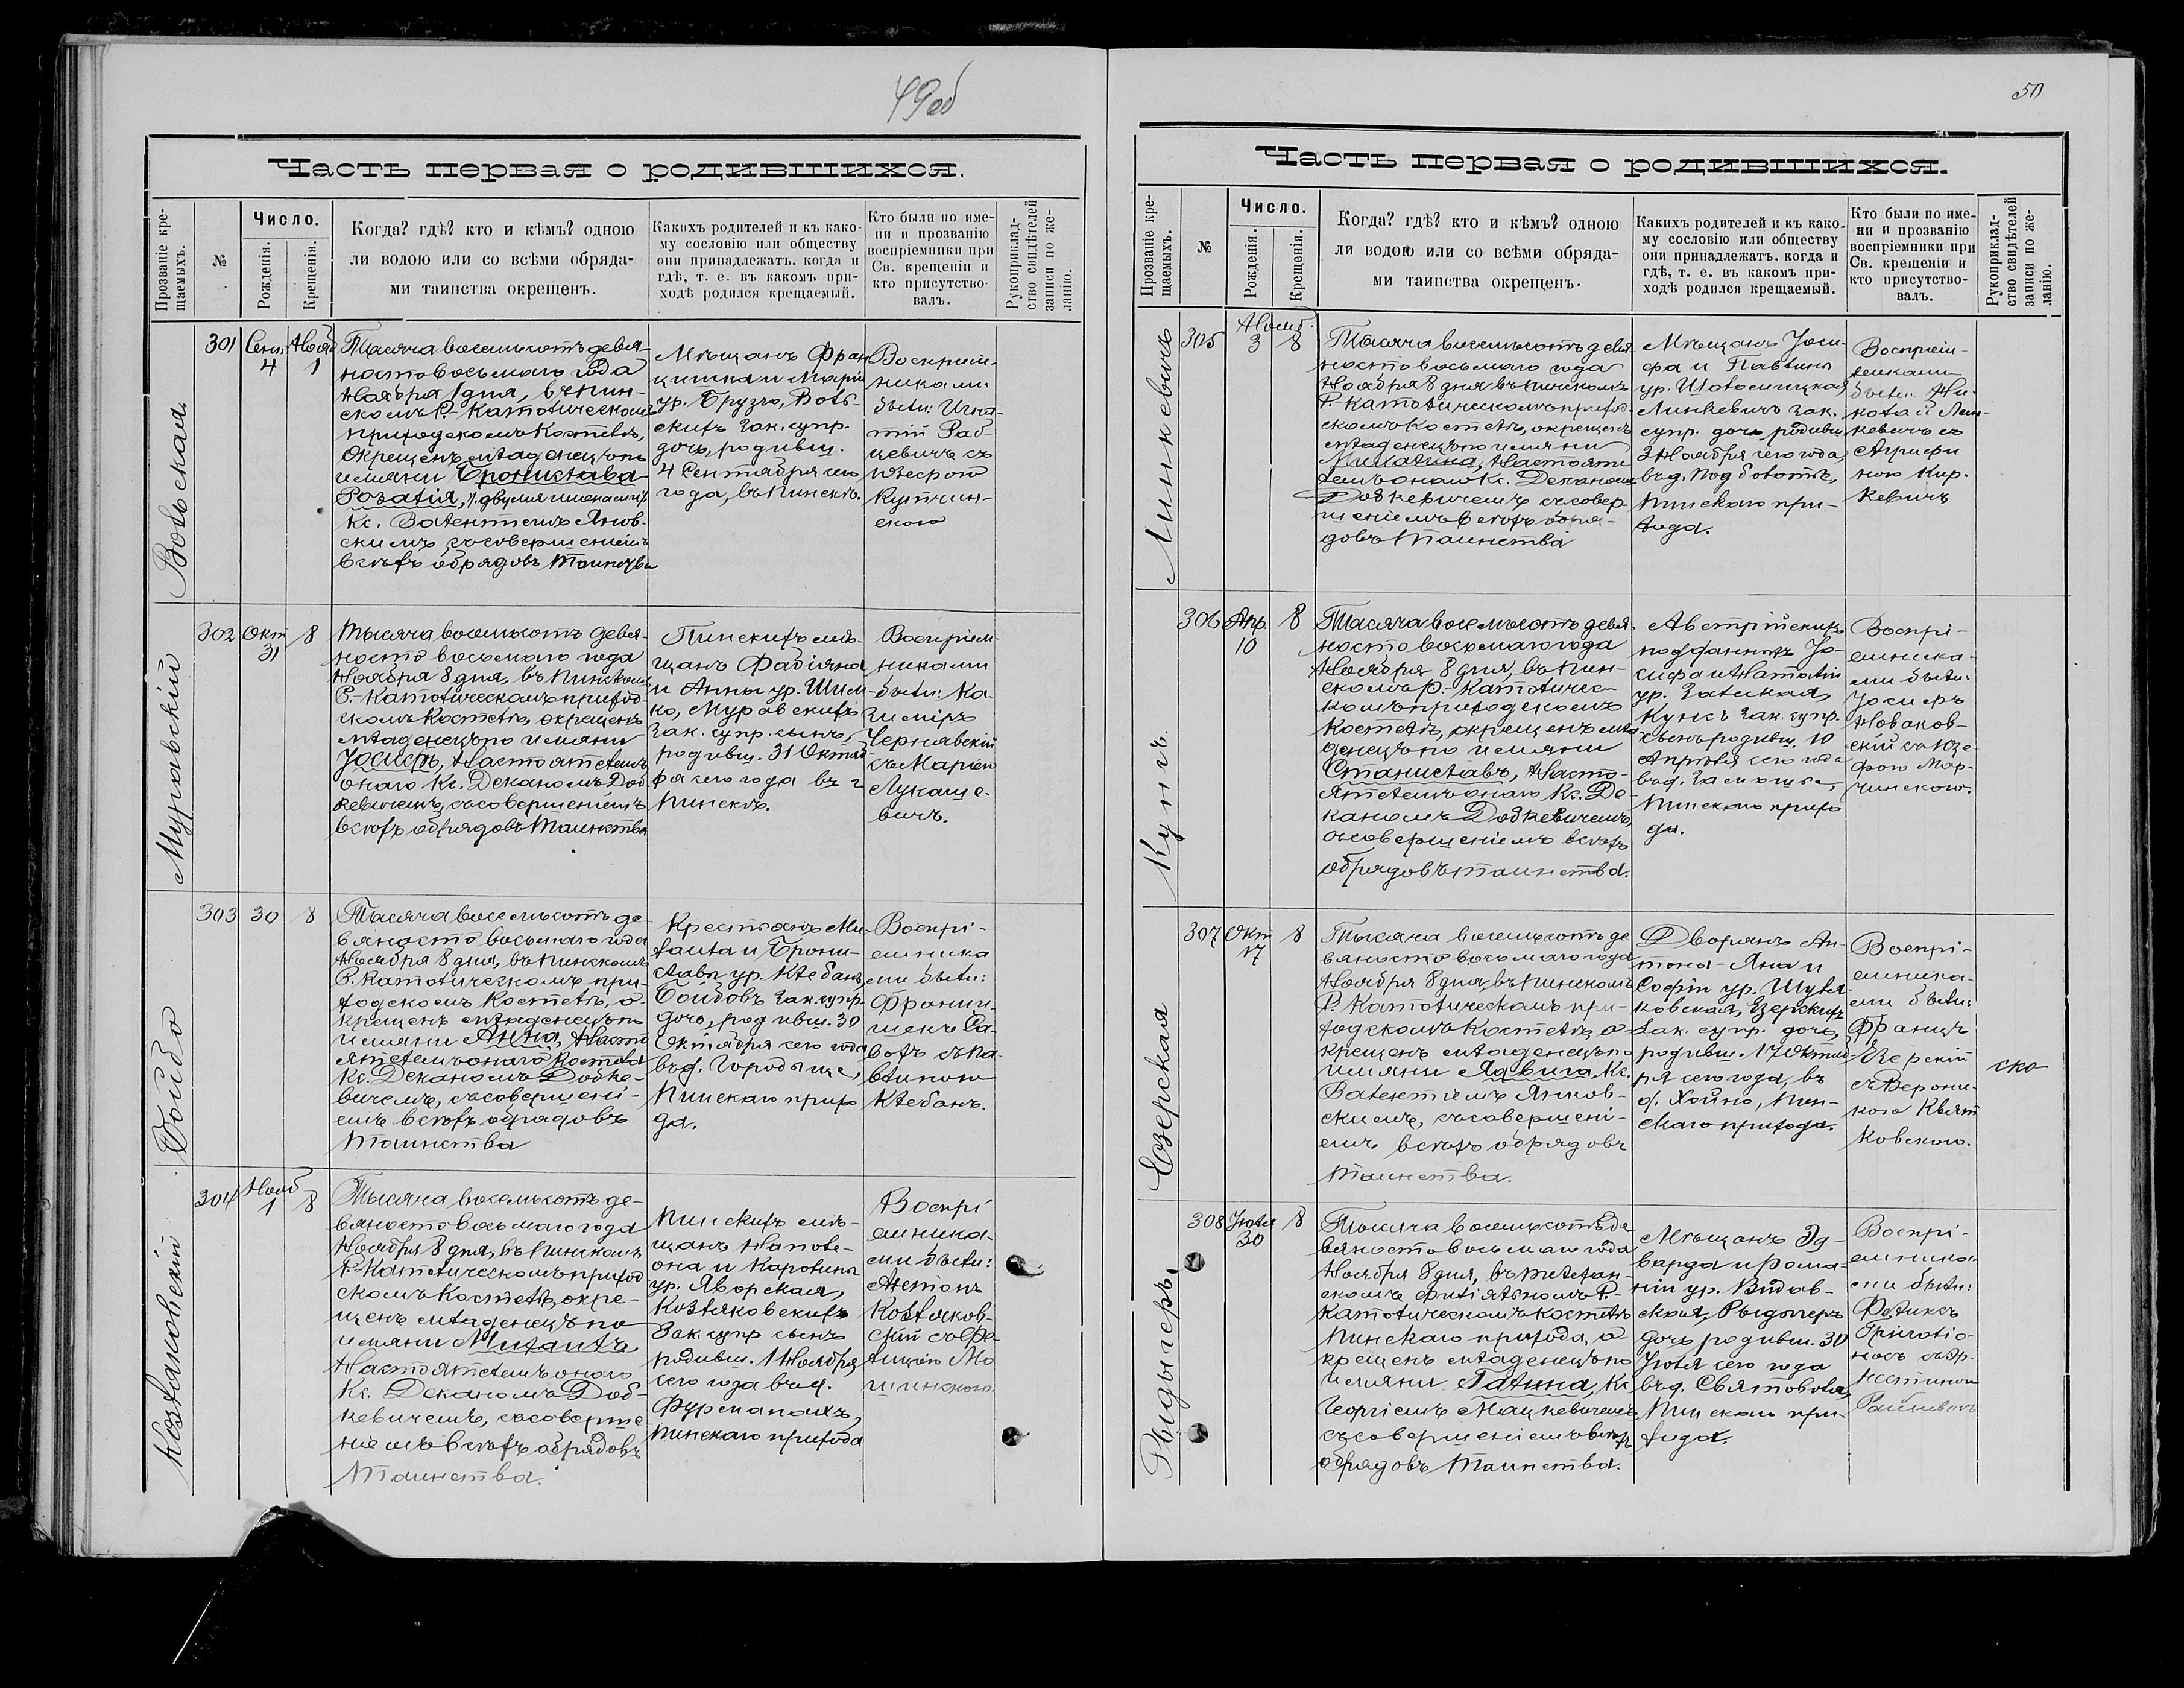 49об
Часть первая о родившихся.
Прозваніе кре-
щаемыхъ.
№
Число.
Рожденія.
Крещенія.
Когда? гдѣ? кто и кѣмъ? одною
ли водою или со всѣми обряда-
ми таинства окрещенъ.
Какихъ родителей и къ како-
му сословію или обществу
они принадлежатъ. когда и
гдѣ, т. е. въ какомъ при-
ходѣ родился крещаемый.
Кто были по име-
ни и прозванію
воспріемники при
Св. крещеніи и
кто присутство-
валъ.
Рукоприклад-
ство свидѣтелей
записи по же-
ланію.
Вольская.
301
Сент.
4
Нояб
1
Тысяча восемьсотъ девя-
носто восьмаго года
Ноября 1 дня, въ Пин-
скомъ Р.-Католическомъ
приходскомъ Костелѣ,
окрещенъ младенецъ по
имяни Бронислава
Розалія, /: двумя именами:/
Кс. Валентіемъ Янов-
скимъ, съ совершеніемъ
всѣхъ обрядовъ Таинства
Мѣщанъ Фран
цишка и Маріи
ур. Грузго, Воль-
скихъ зак. супр.
дочь, родивш.
4 Сентября сего
года, въ Пинскѣ.
Воспріем-
никами
были: Игна-
тій Раб-
цевичъ съ
Юзефою
Купчин-
скою
Муравьскій
302
Окт
31
8
Тысяча восемьсотъ девя-
носто восьмаго года
Ноября 8 дня, въ Пинскомъ
Р.-Католическомъ приход-
скомъ Костелѣ, окрещенъ
младенецъ по имяни
Іосифъ, Настоятелемъ
онаго Кс. Деканомъ Доб
кевичемъ, съ совершеніемъ
всѣхъ обрядовъ Таинства
Пинскихъ мѣ-
щанъ Фабіяна
и Анны ур. Шим-
ко, Муравскихъ
зак. супр. сынъ,
родивш. 31 Октяб
ря сего года въ г.
Пинскѣ.
Воспріем
никами
были: Ка-
зиміръ
Чернявскій
съ Маріею
Лукаше-
вичъ.
Дойбо
303
30
8
Тысяча восемьсотъ де-
вяносто восьмаго года
Ноября 8 дня, въ Пинскомъ
Р. Католическомъ при-
ходскомъ Костелѣ, о-
крещенъ младенецъ по
имяни Анна, Насто
ятелемъ онаго Костела
Кс. Деканомъ Добке-
вичемъ, съ совершені-
емъ всѣхъ обрядовъ
Таинства
Крестьянъ Ми-
хаила и Брони-
славы ур. Клебанъ,
Бойбовъ зак. супр.
дочь, родивш. 30
Октября сего года
въ д. Городище,
Пинскаго прихо
да.
Воспрі-
емника
ми были:
Францы-
шекъ Са-
вохъ съ Па-
влиною
Клебанъ.
Козляковскій
304
Нояб
1
8
Тысяча восемьсотъ де-
вяносто восьмаго года
Ноября 8 дня, въ Пинскомъ
Р.-Католическомъ приход
скомъ Костелѣ, окре-
щенъ младенецъ по
имяни Михаилъ,
Настоятелемъ онаго
Кс. Деканомъ Доб-
кевичемъ, съ соверше
ніемъ всѣхъ обрядовъ
Таинства.
Пинскихъ мѣ-
щанъ Наполе-
она и Каролины
ур. Яворская,
Козляковскихъ
Зак. супр сынъ
родивш. 1 Ноября
сего года въ д.
Фурманахъ,
Пинскаго прихода
Воспрі
емника-
ми были:
Антонъ
Козляков-
скій съ Фе-
лиціею Мо
щинскою
50
Часть первая о родившихся.
Прозваніе кре-
щаемыхъ.
№
Число.
Рожденія.
Крещенія.
Когда? гдѣ? кто и кѣмъ? одною
ли водою или со всѣми обряда-
ми таинства окрещенъ.
Какихъ родителей и къ како-
му сословію или обществу
они принадлежатъ. когда и
гдѣ, т. е. въ какомъ при-
ходѣ родился крещаемый.
Кто были по име-
ни и прозванію
воспріемники при
Св. крещеніи и
кто присутство-
валъ.
Рукоприклад-
ство свидѣтелей
записи по же-
ланію.
Линкевичъ
305
Нояб.
3
8
Тысяча восемьсотъ девя-
носто восьмаго года
Ноября 8 дня въ Пинскомъ
Р.-Католическомъ приход-
скомъ Костелѣ, окрещенъ
младенецъ по имяни
Михалина, Настояте
лемъ онаго Кс. Деканомъ
Добкевичемъ съ совер-
шеніемъ всѣхъ обря-
довъ Таинства
Мѣщанъ Іоси-
фа и Павлины
ур. Шоломицкая,
Линкевичъ зак.
супр. дочь родивш
3 Ноября сего года,
въ д. Подболотѣ,
Пинскаго при-
хода.
Воспріем-
никами
были: Ни-
колай Лин-
кевичъ съ
Агрипи
ною Кир-
кевичъ
Кунцъ.
306
Апр.
10
8
Тысяча восемьсотъ девя-
носто восьмаго года
Ноября 8 дня, въ Пин-
скомъ Р.-Католичес-
комъ приходскомъ
Костелѣ, окрещенъ мла-
денецъ по имяни
Станиславъ, Насто-
ятелемъ онаго Кс. Де-
каномъ Добкевичемъ,
съ совершеніемъ всѣхъ
обрядовъ таинства.
Австрійскихъ
подданныхъ Іо-
сифа и Наталіи
ур. Залеская,
Кунсъ зак. супр.
сынъ родивш. 10
Апрѣля сего года
въ д. Замошье,
Пинскаго прихо
да.
Воспрі-
емника-
ми были:
Іосифъ
Новаков-
скій съ Юзе-
фою Мар-
чинскою.
Езерская
307
Окт
17
8
Тысяча восемьсотъ де
вяносто восьмаго года
Ноября 8 дня, въ Пинскомъ
Р. Католическомъ при-
ходскомъ Костелѣ, о-
крещенъ младенецъ по
имяни Ядвига, Кс.
Валентіемъ Янков-
скимъ, съ совершені-
емъ всѣхъ обрядовъ
Таинства.
Дворянъ Ан-
тона-Яна и
Софіи ур. Шуля-
ковская, Езерскихъ
зак. супр. дочь,
родивш. 17 Октяб-
ря сего года, въ
д. Хойно, Пин-
скаго прихода.
Воспрі-
емника-
ми были:
Францъ
Езерскій
съ Верони-
кою Квят
ковскою.
ско
Рыдыгеръ,
308
Іюля
30
8
Тысяча восемьсотъ де
вяносто восьмаго года
Ноября 8 дня, въ Телехан-
скомъ филіяльномъ Р.-
Католическомъ Костелѣ
Пинскаго прихода, о-
крещенъ младенецъ по
имяни Галина, Кс
Георгіемъ Мацкевичемъ
съ совершеніемъ всѣхъ
обрядовъ Таинства.
Мѣщанъ Эд-
варда и Рома-
ніи ур. Видав-
ская, Рыдыгеръ
дочь родивш. 30
Іюля сего года
въ д. Святоволя,
Пинскаго при-
хода.
Воспрі-
емника-
ми были:
Феликсъ
съ Эр-
нестиною